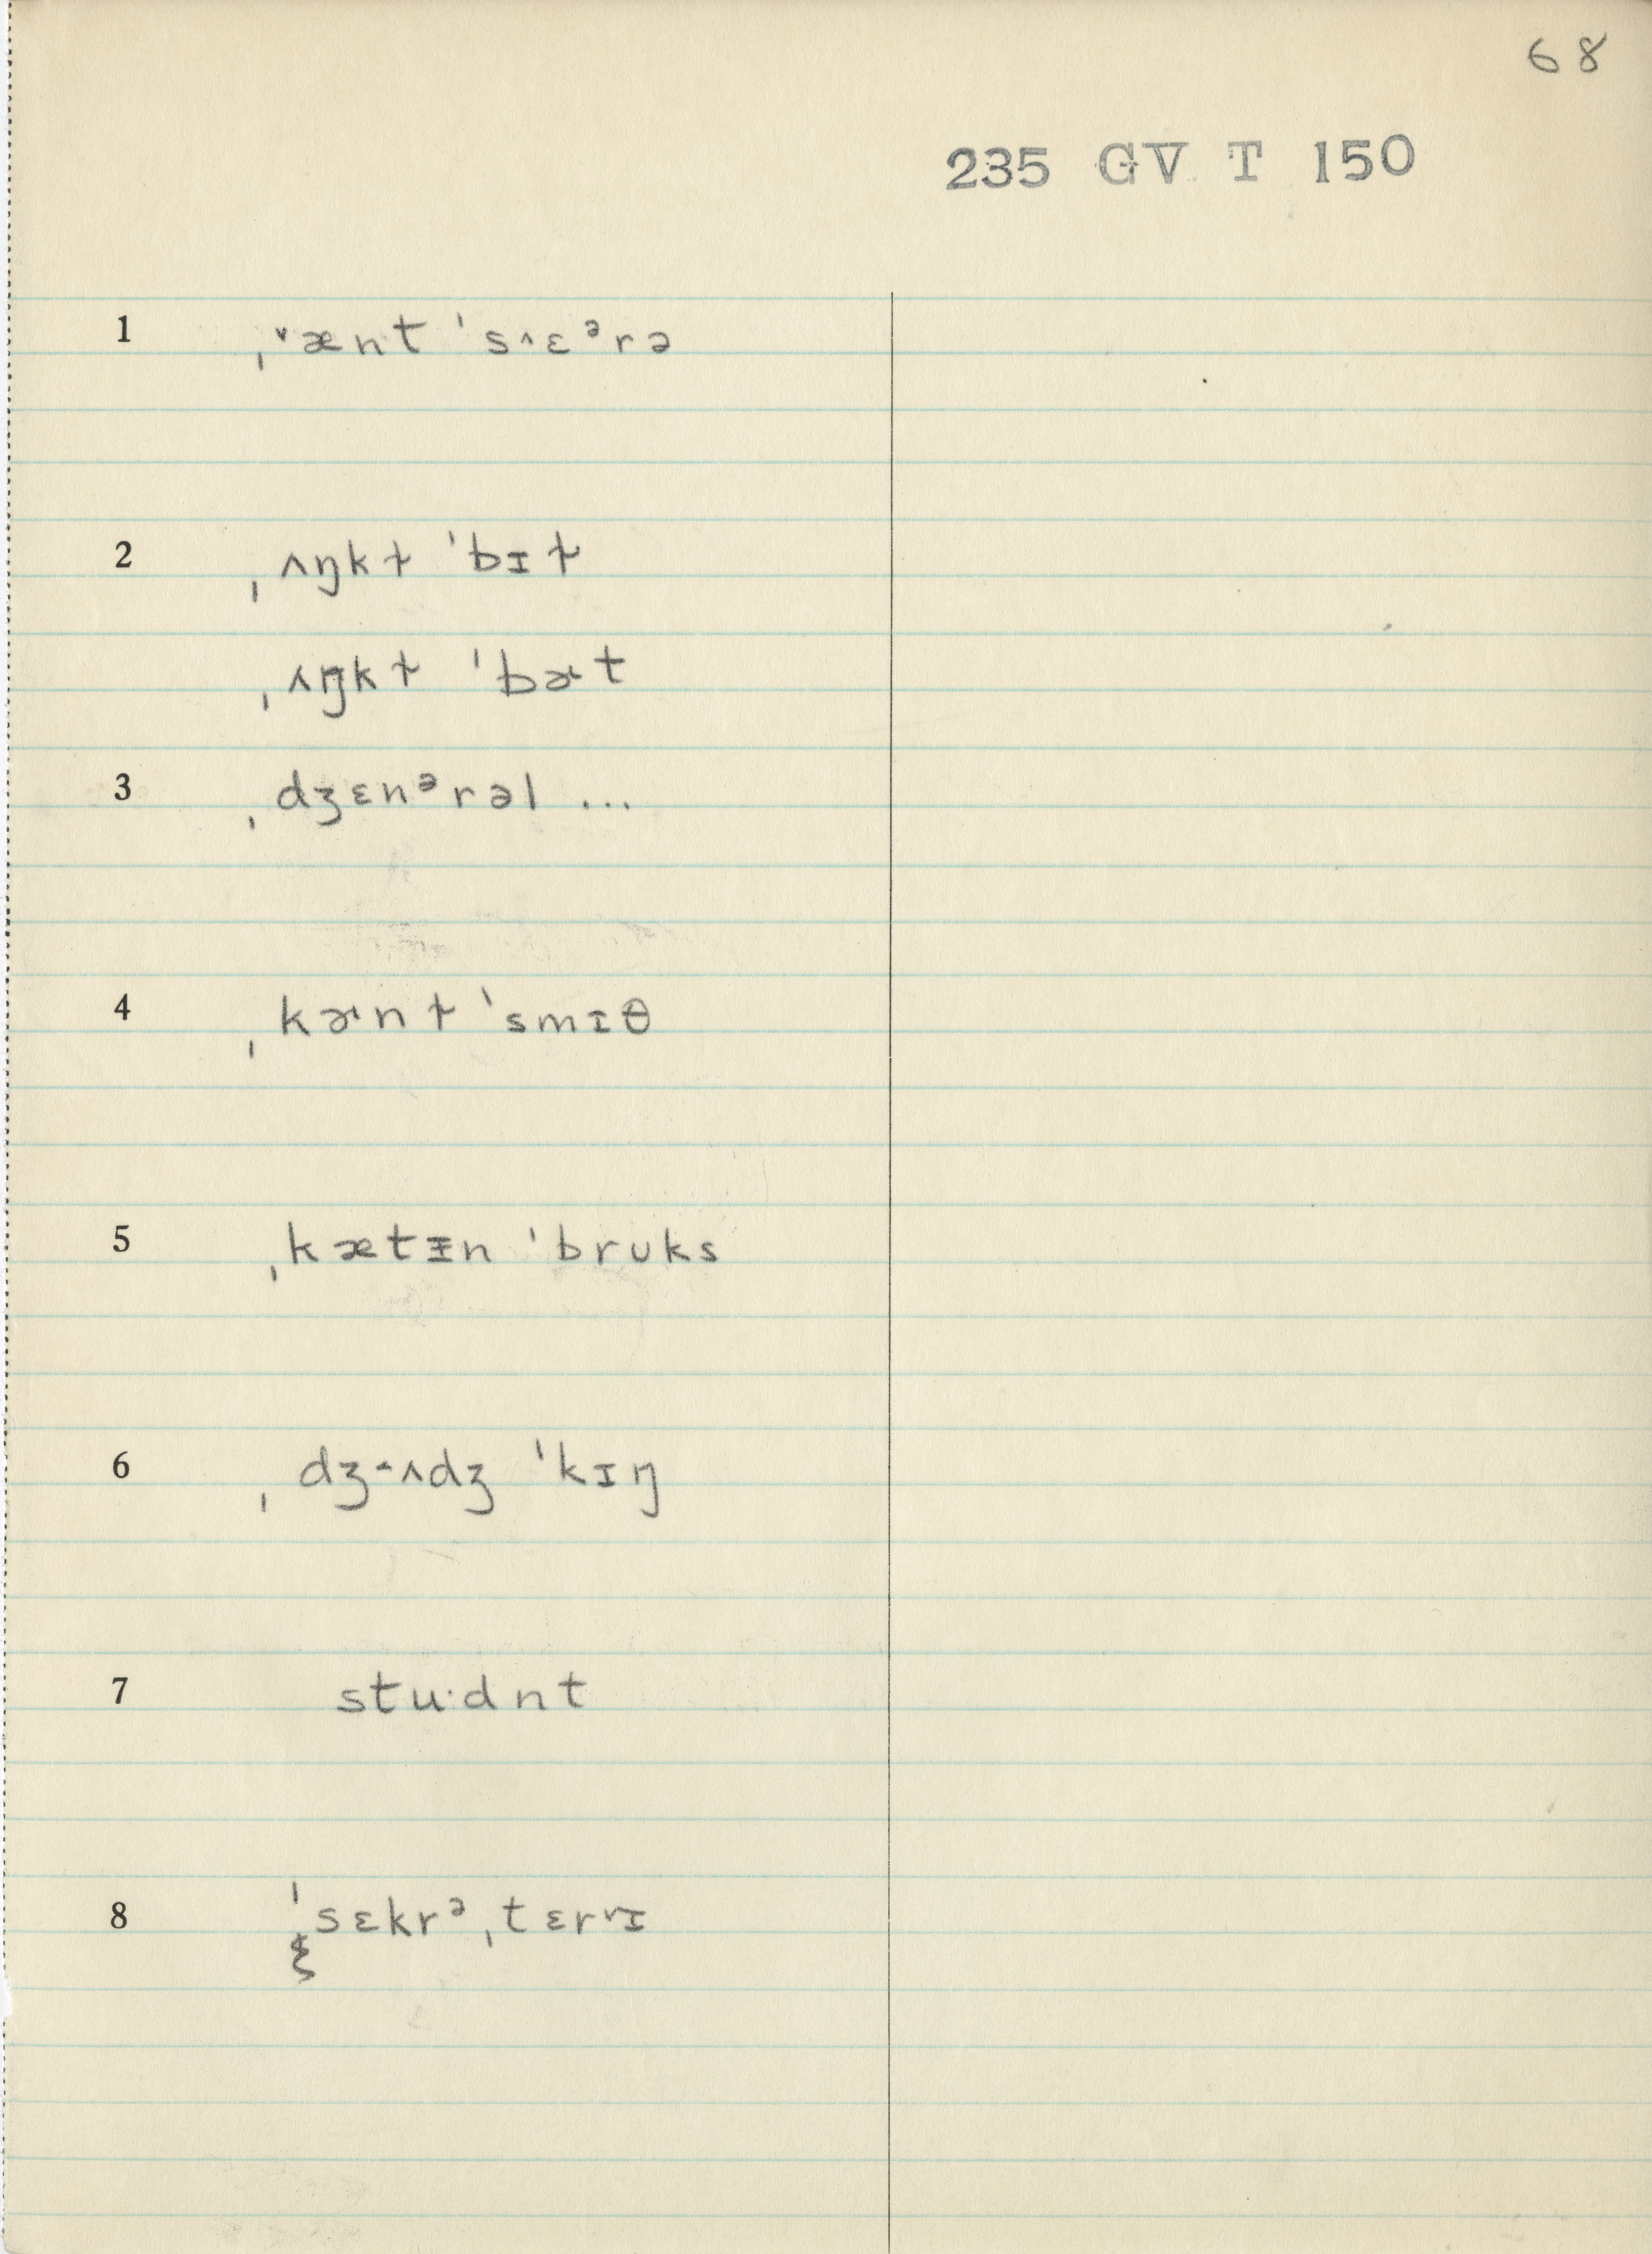 68
235 GV T 150
1 ˌ˅ænt ˈs˄ɛᵊrə
2 ˌʌŋkɫ ˈbɪɫ
ˌʌŋkɫ ˈbɚt
3 ˌdʒɛnᵊrəl ...
4 ˌkɚnɫ ˈsmɪθ
5 ˌkætᵻn ˈbruks
6 ˌdʒ˂ʌdʒ ˈkɪŋ
7 stu·dnt
8 ˈsɛkrᵊˌtɛr˅ɪ